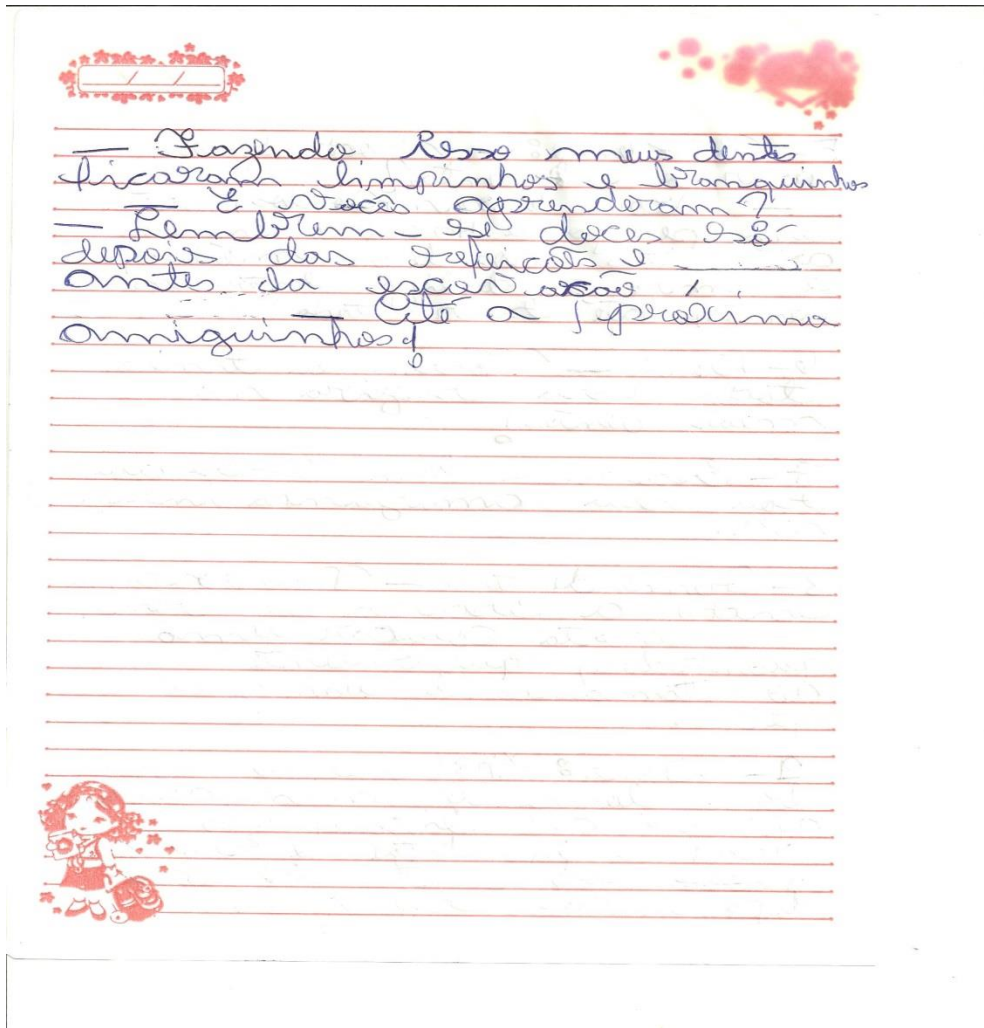 — Fazendo isso meus dentes
ficaram limpinhos e branquinhos
— E vocês aprenderam?
— Lembrem-se doces só
depois das refeições e
antes da escovação!
— Até a próxima
amiguinhos!